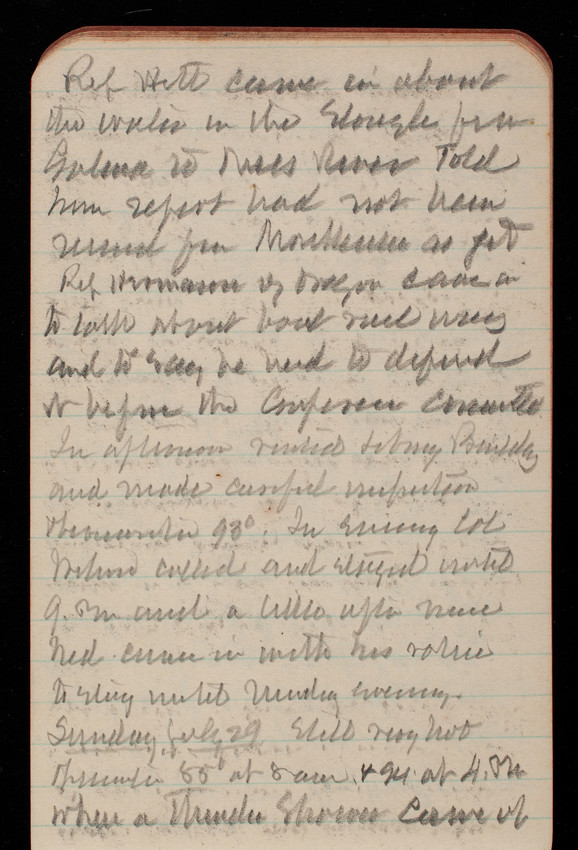 Rep Hitt came in about
the water in the Slough from
Galena to River Told
him report had not been
received from as yet
Rep Hermann of Oregon came in
to talk about boat rail way
and to say he need to defend
it before the Conference Committee
In afternoon visited Library Building
and made careful inspection
thermometer 93°. In evening Col
Wilson called and stayed until
9. Pm and a little after nine
Ned came in with his valise
to stay until Monday evening.
Sunday July 29 Still very hot
thermometer 88° at 8 am. & 94 at 4. Pm
when a Thunder Shower came up